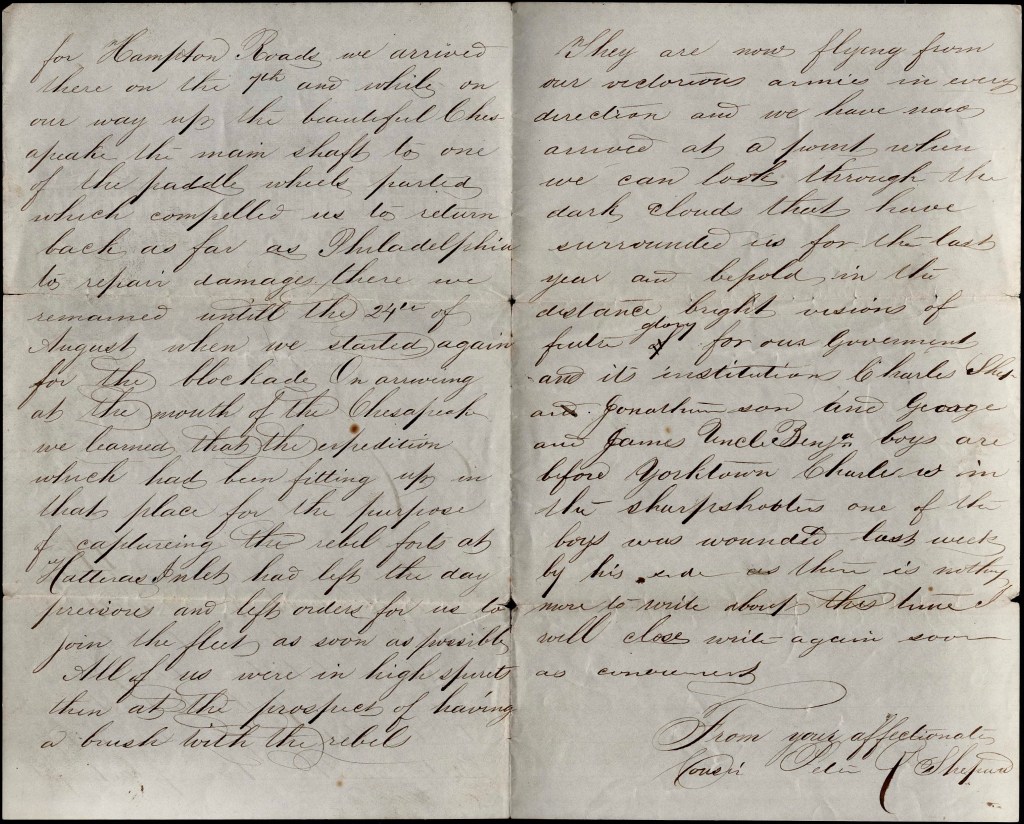 for Hampton Roads we arrived
there on the 7th and while on
our way up the beautiful Ches-
apeake the main shaft to one
of the paddle wheels parted
which compelled us to return
back as far as Philadelphia
to repair damages there we
remained untill the 24th of
August when we started again
for the blockade On arriveing
at the mouth of the Chesapeak
we learned that the expedition
which had been fitting up in
that place for the purpose
of captureing the rebel forts at
Hatteras Inlet had left the day
previous and left orders for us to
join the fleet as soon as possible
All of us were in high spirits
then at the prospect of having
a brush with the rebel
They are now flying from
our victorious armies in every
direction and we have now
arrived at a point when
we can look through the
dark clouds that have
surrounded us for the last
year and behold in the
distance bright visions of
glory
futer x for our Goverment
and its institutions Charles Shep-
ard Jonathan son and George
and James Uncle Benja boys are
before Yorktown Charle is in
the sharpshooters one of the
boys was wounded last week
by his side as there is nothing
more to write about this time I
will close write again soon
as convenient
From your affectionate
Cousin Peter Shepard